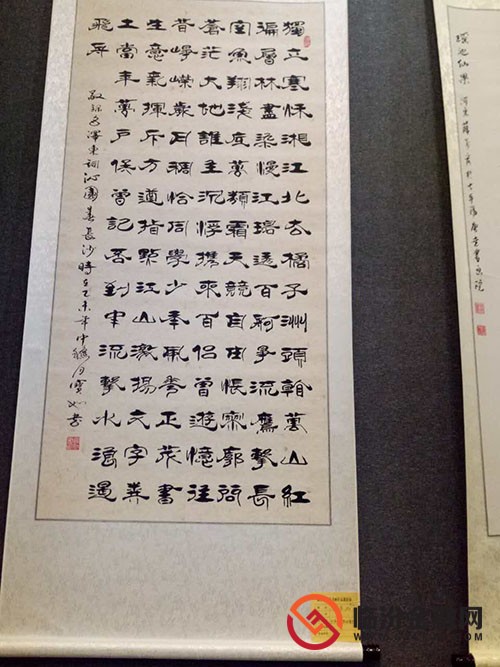 獨立寒秋湘江北去橘子洲頭看萬山紅
遍層林盡染漫江碧透百舸爭流鷹擊長
空魚翔淺底萬類霜天競自由悵寥廓問
蒼茫大地誰主沉浮攜來百侶曾遊憶往
昔崢嶸歲月稠恰同學少年風華正茂書
生意氣揮斥方遒指點江山激揚文字糞
土當年萬戶侯曾記否到中流擊水浪遏
飛舟
敬録毛澤東詞沁園春長沙時在乙未年中秋月寶
网